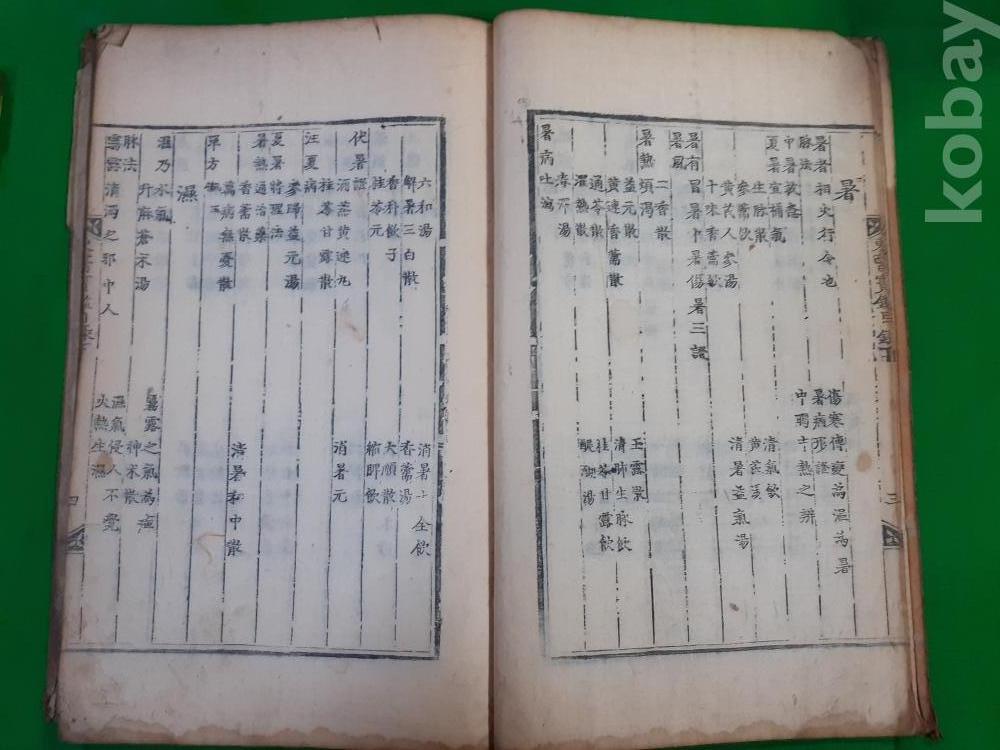 暑
暑者相火行令也
傷寒傳變爲溫爲暑
脉法
暑病形證
中暑救急
中暍中熱之辨
夏暑宜補氣
生脉散
清暑益氣湯
黃芪人參湯
十味香薷飲
暑有冒暑中暑傷暑三證
暑風
暑熱煩渴
二香散
玉露散
益元散
清肺生脉飲
黃連香薷散
桂苓甘露飲
通苓散
醍醐湯
濯熱散
春澤湯
暑病吐瀉
三
六和湯
消暑十全飲
解暑三白散
香薷湯
香朴飲子
大順散
桂苓元
縮脾飲
伏暑證
酒蒸黃連丸
消暑元
桂苓甘露散
注夏病
參歸益元湯
夏暑將理法
暑熱通治藥
香薷散
清暑和中散
萬病無憂散
單方
濕
濕乃水氣
霧露之氣爲瘴
升麻蒼朮湯
神朮散
脉法
濕氣侵人不覺
霧露清濁之邪中人
火熱生濕
四
kobay